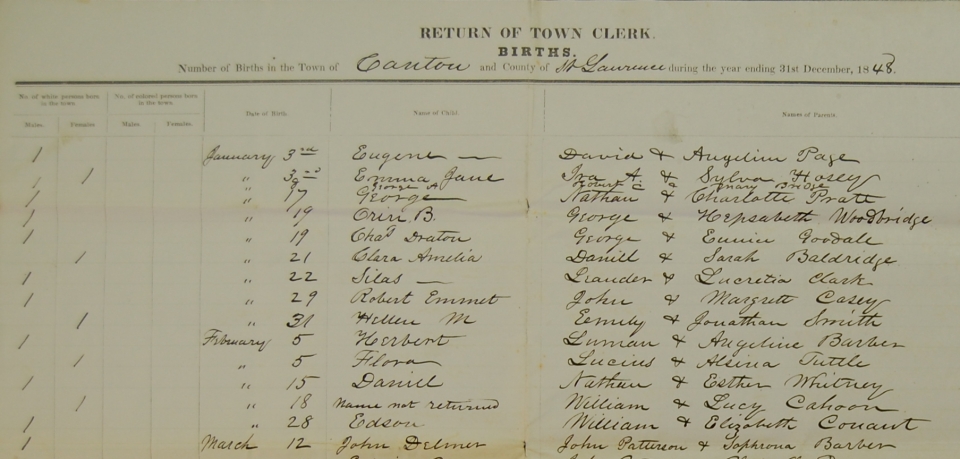 RETURN OF TOWN CLERK.
BIRTHS.
Number of Births in the Town of Canton and County of St Lawrence during the year ending 31st December, 1848.
No. of white persons born in the town. No. of colored persons born in the town. Date of Birth. Name of Child. Names of Parents.
Males. Females. Males. Females.
1 January 3rd Eugene — David & Angeline Page
1 " 3rd Emma Jane Ira A. & Sylva Hosey
1 " 9 George A Robert C & Mary Bridge
1 " 17 George Nathan & Charlotte Pratt
1 " 19 Orin B. George & Hepsabeth Woodbridge
1 " 19 Chas Draton George & Eunice Goodale
1 " 21 Clara Amelia Daniell & Sarah Baldridge
1 " 22 Silas — Leander & Lucretia Clark
1 " 29 Robert Emmet John & Margrett Casey
1 " 31 Hellen M Eemily & Jonathan Smith
1 February 5 Herbert Luman & Angeline Barber
1 " 5 Flora Lucius & Alsina Tuttle
1 " 15 Daniell Nathan & Esther Whitney
1 " 18 Name not returned William & Lucy Cahoon
1 " 28 Edson William & Elizabeth Conant
1 March 12 John Delmer John Patterson & Sophrona Barber